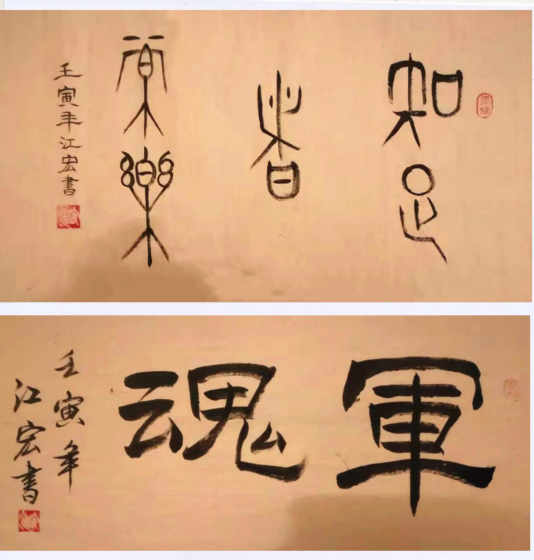 知足
者
常樂
壬寅年江宏書
軍魂
壬寅年
江宏書